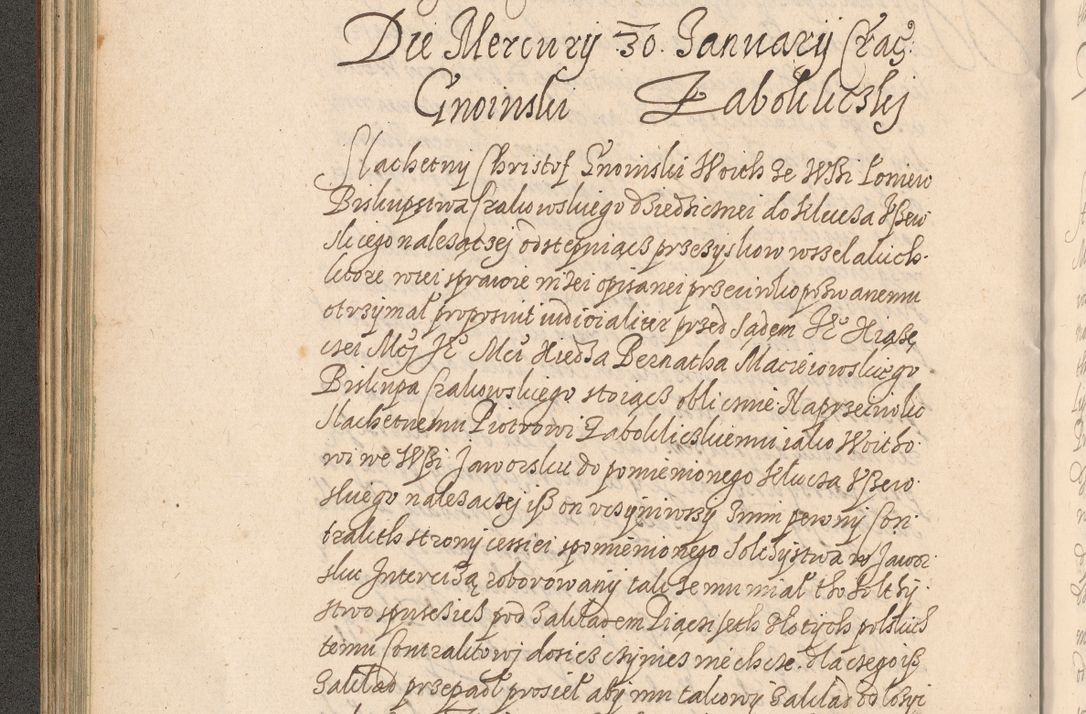 Die Mercurÿ 30. Januarÿ Crac:
Gnoinski Zaboklickÿ
Slachetny Christof Gnoinski Woith ze Wsi Łoniew
Biskupstwa Crakowskiego dziedzicznei do klucza
skiego nalezączej odstępuiącz przezyskow wszelakich
ktore wtei sprawie niżei opisanei przeciwko pozwanemu
otrzymał proposuit iudicialiter przed Sądem Je° Xiążę
czei Mcj Je° Mci Xiedza Bernatha Macieiowskiego
Biskupa Crakowskiego stoiącz oblicznie. Naprzeciwko
slachetnemu Piotrowi Zaboklickiemu iako Woitho
wi we Wsi Jaworsku do pomienionego klucza
skiego nalezaczej iß on vczyniwszy znim pewny Con
trakth strony cessiei spomienionego Soltzystwa w Jawor
sku Intercizą roborowany tak ze mu miał tho Soltzy
stwo spuscicz pod zakładem Piącziseth złotych polskich
temu Contraktowj dosicz czynicz niechcze. Dlaczego iß
zakład przepadł prosieł aby mu takowy zakład odłozył